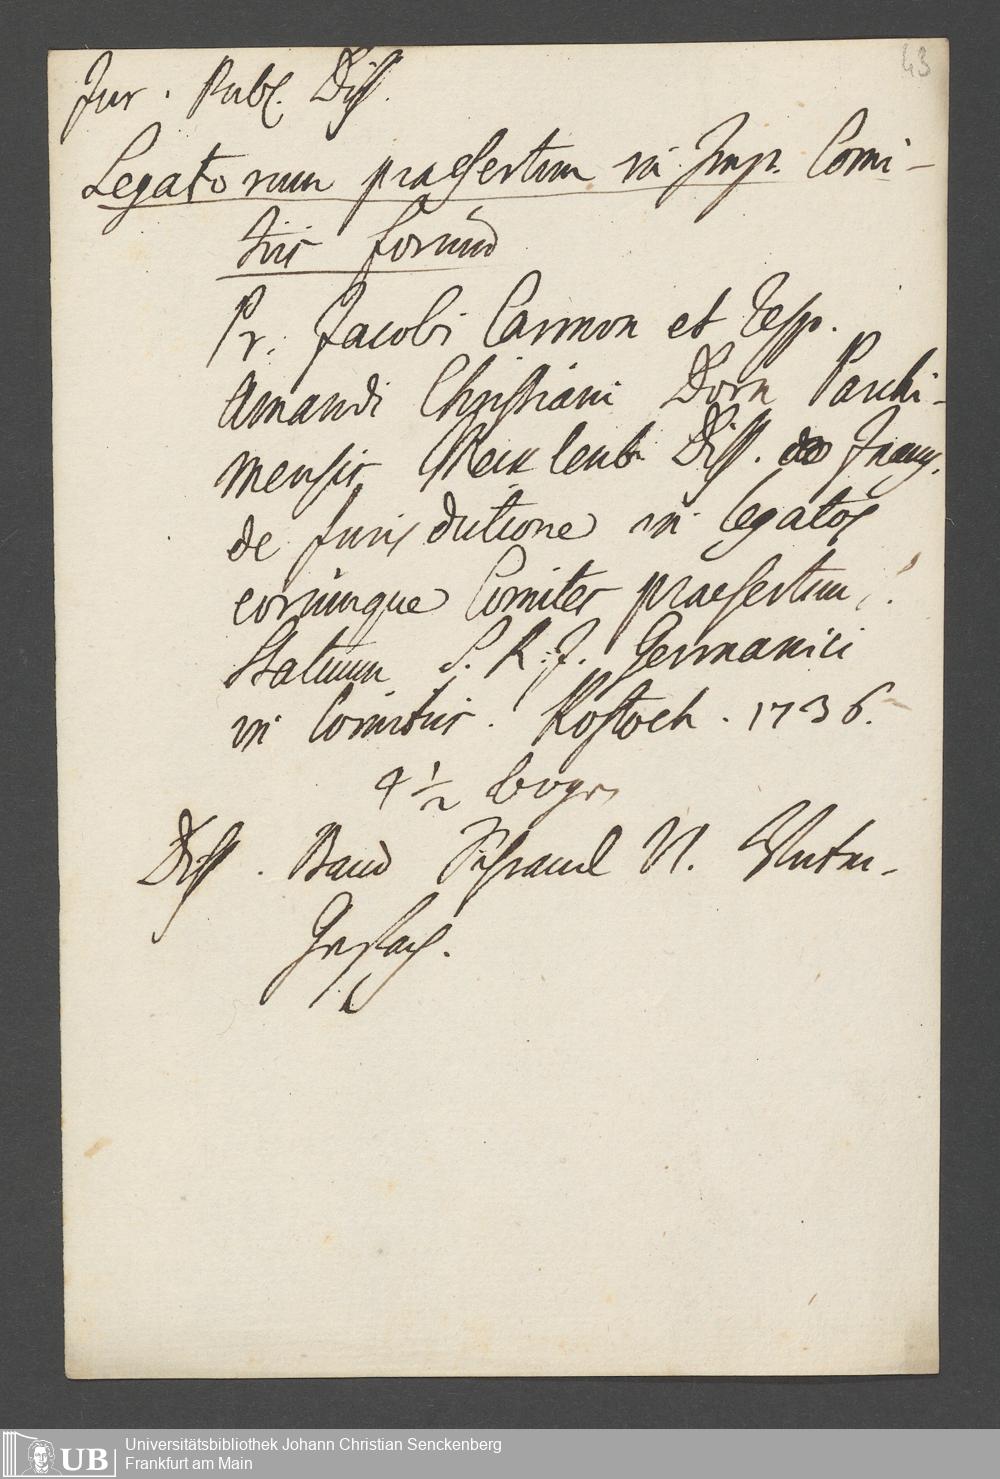 43
Jur. Publ. Diss.
Legatorum praesertim in Imp. Comi-
tiis forum
Pr. Jacobi Carmon et resp.
Amandi Christiani Dorn Parchi-
mensis Mecklenb. Diss. de Inaug.
de Jurisdictione in legatos
eorumque Comites praesertim
Statuum S. R. J. Germanici
in Comitiis. Rostoch. 1736.
4 1/2 bogn
Diss. Band N.
UB Universitätsbibliothek Johann Christian Senckenberg
Frankfurt am Main